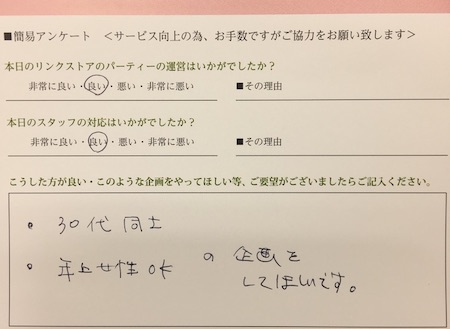 ■簡易アンケート　＜サービス向上の為、お手数ですがご協力をお願い致します＞
本日のリンクストアのパーティーの運営はいかがでしたか？
非常に良い・良い・悪い・非常に悪い　■その理由
本日のスタッフの対応はいかがでしたか？
非常に良い・良い・悪い・非常に悪い　■その理由
こうした方が良い・このような企画をやってほしい等、ご要望がございましたらご記入ください。
・30代同士
・年上女性OK　の企画を
してほしいです。